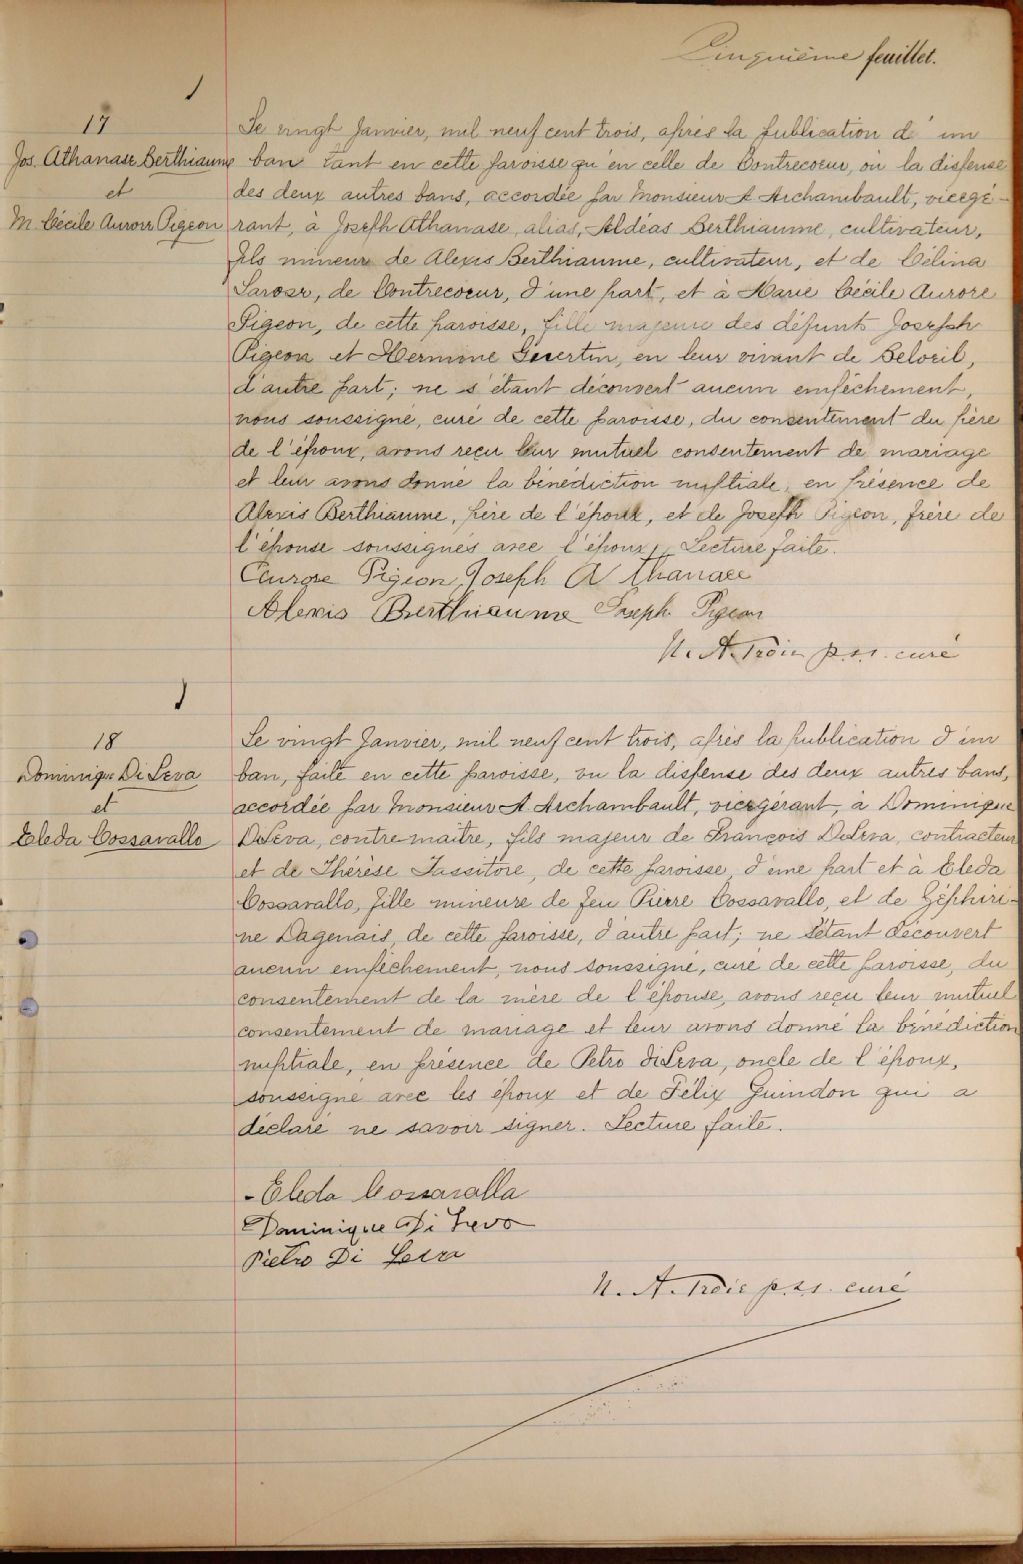 Cinquième feuillet.
17
Jos. Athanase Berthiaume
et
M. Cécile Aurore Pigeon
Le vingt Janvier, mil neuf cent trois, après la publication d'un
ban tant en cette paroisse qu'en celle de Contrecoeur, où la dispense
des deux autres bans, accordée par Monsieur A Archambault, vicegé-
rant, à Joseph Athanase, alias, Aldéas Berthiaume, cultivateur,
fils mineur de Alexis Berthiaume, cultivateur, et de Célina
de Contrecoeur, d'une part, et à Marie Cécile Aurore
Pigeon, de cette paroisse, fille majeure des défunts Joseph
Pigeon et Hermine Guertin, en leur vivant de Beloeil,
d'autre part; ne s'étant découvert aucun empêchement,
nous soussigné, curé de cette paroisse, du consentement du père
de l'époux, avons reçu leur mutuel consentement de mariage
et leur avons donné la bénédiction nuptiale, en présence de
Alexis Berthiaume, père de l'époux, et de Joseph Pigeon, frère de
l'épouse soussignés avec l'époux, Lecture faite.
Aurore Pigeon, Joseph Athanase
Alexis Berthiaume Joseph Pigeon
N. A. Troie p.s.s. curé
18
Dominique Di Leva
et
Eleda Cossavallo
Le vingt Janvier, mil neuf cent trois, après la publication d'un
ban, faite en cette paroisse, vu la dispense des deux autres bans,
accordée par Monsieur A Archambault, vicegérant, à Dominique
DiLeva, contre-maître, fils majeur de François DiLeva, contracteur
et de Thérèse Tassitore, de cette paroisse, d'une part et à Eleda
Cossavallo, fille mineure de feu Pierre Cossavallo, et de Géphiri-
ne Dagenais, de cette paroisse, d'autre part; ne s'étant découvert
aucun empêchement, nous soussigné, curé de cette paroisse, du
consentement de la mère de l'épouse, avons reçu leur mutuel
consentement de mariage et leur avons donné la bénédiction
nuptiale, en présence de Petro diLeva, oncle de l'époux,
soussigné avec les époux et de Félix Guindon qui a
déclaré ne savoir signer. Lecture faite.
Eleda Cossavalla
Dominique Di Leva
Pietro Di Leva
N. A. Troie p.s.s. curé